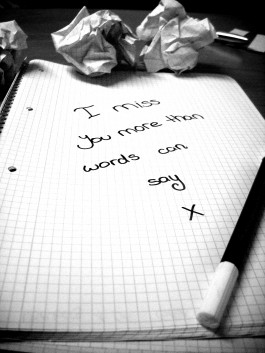 I miss
you more than
words can
say
X